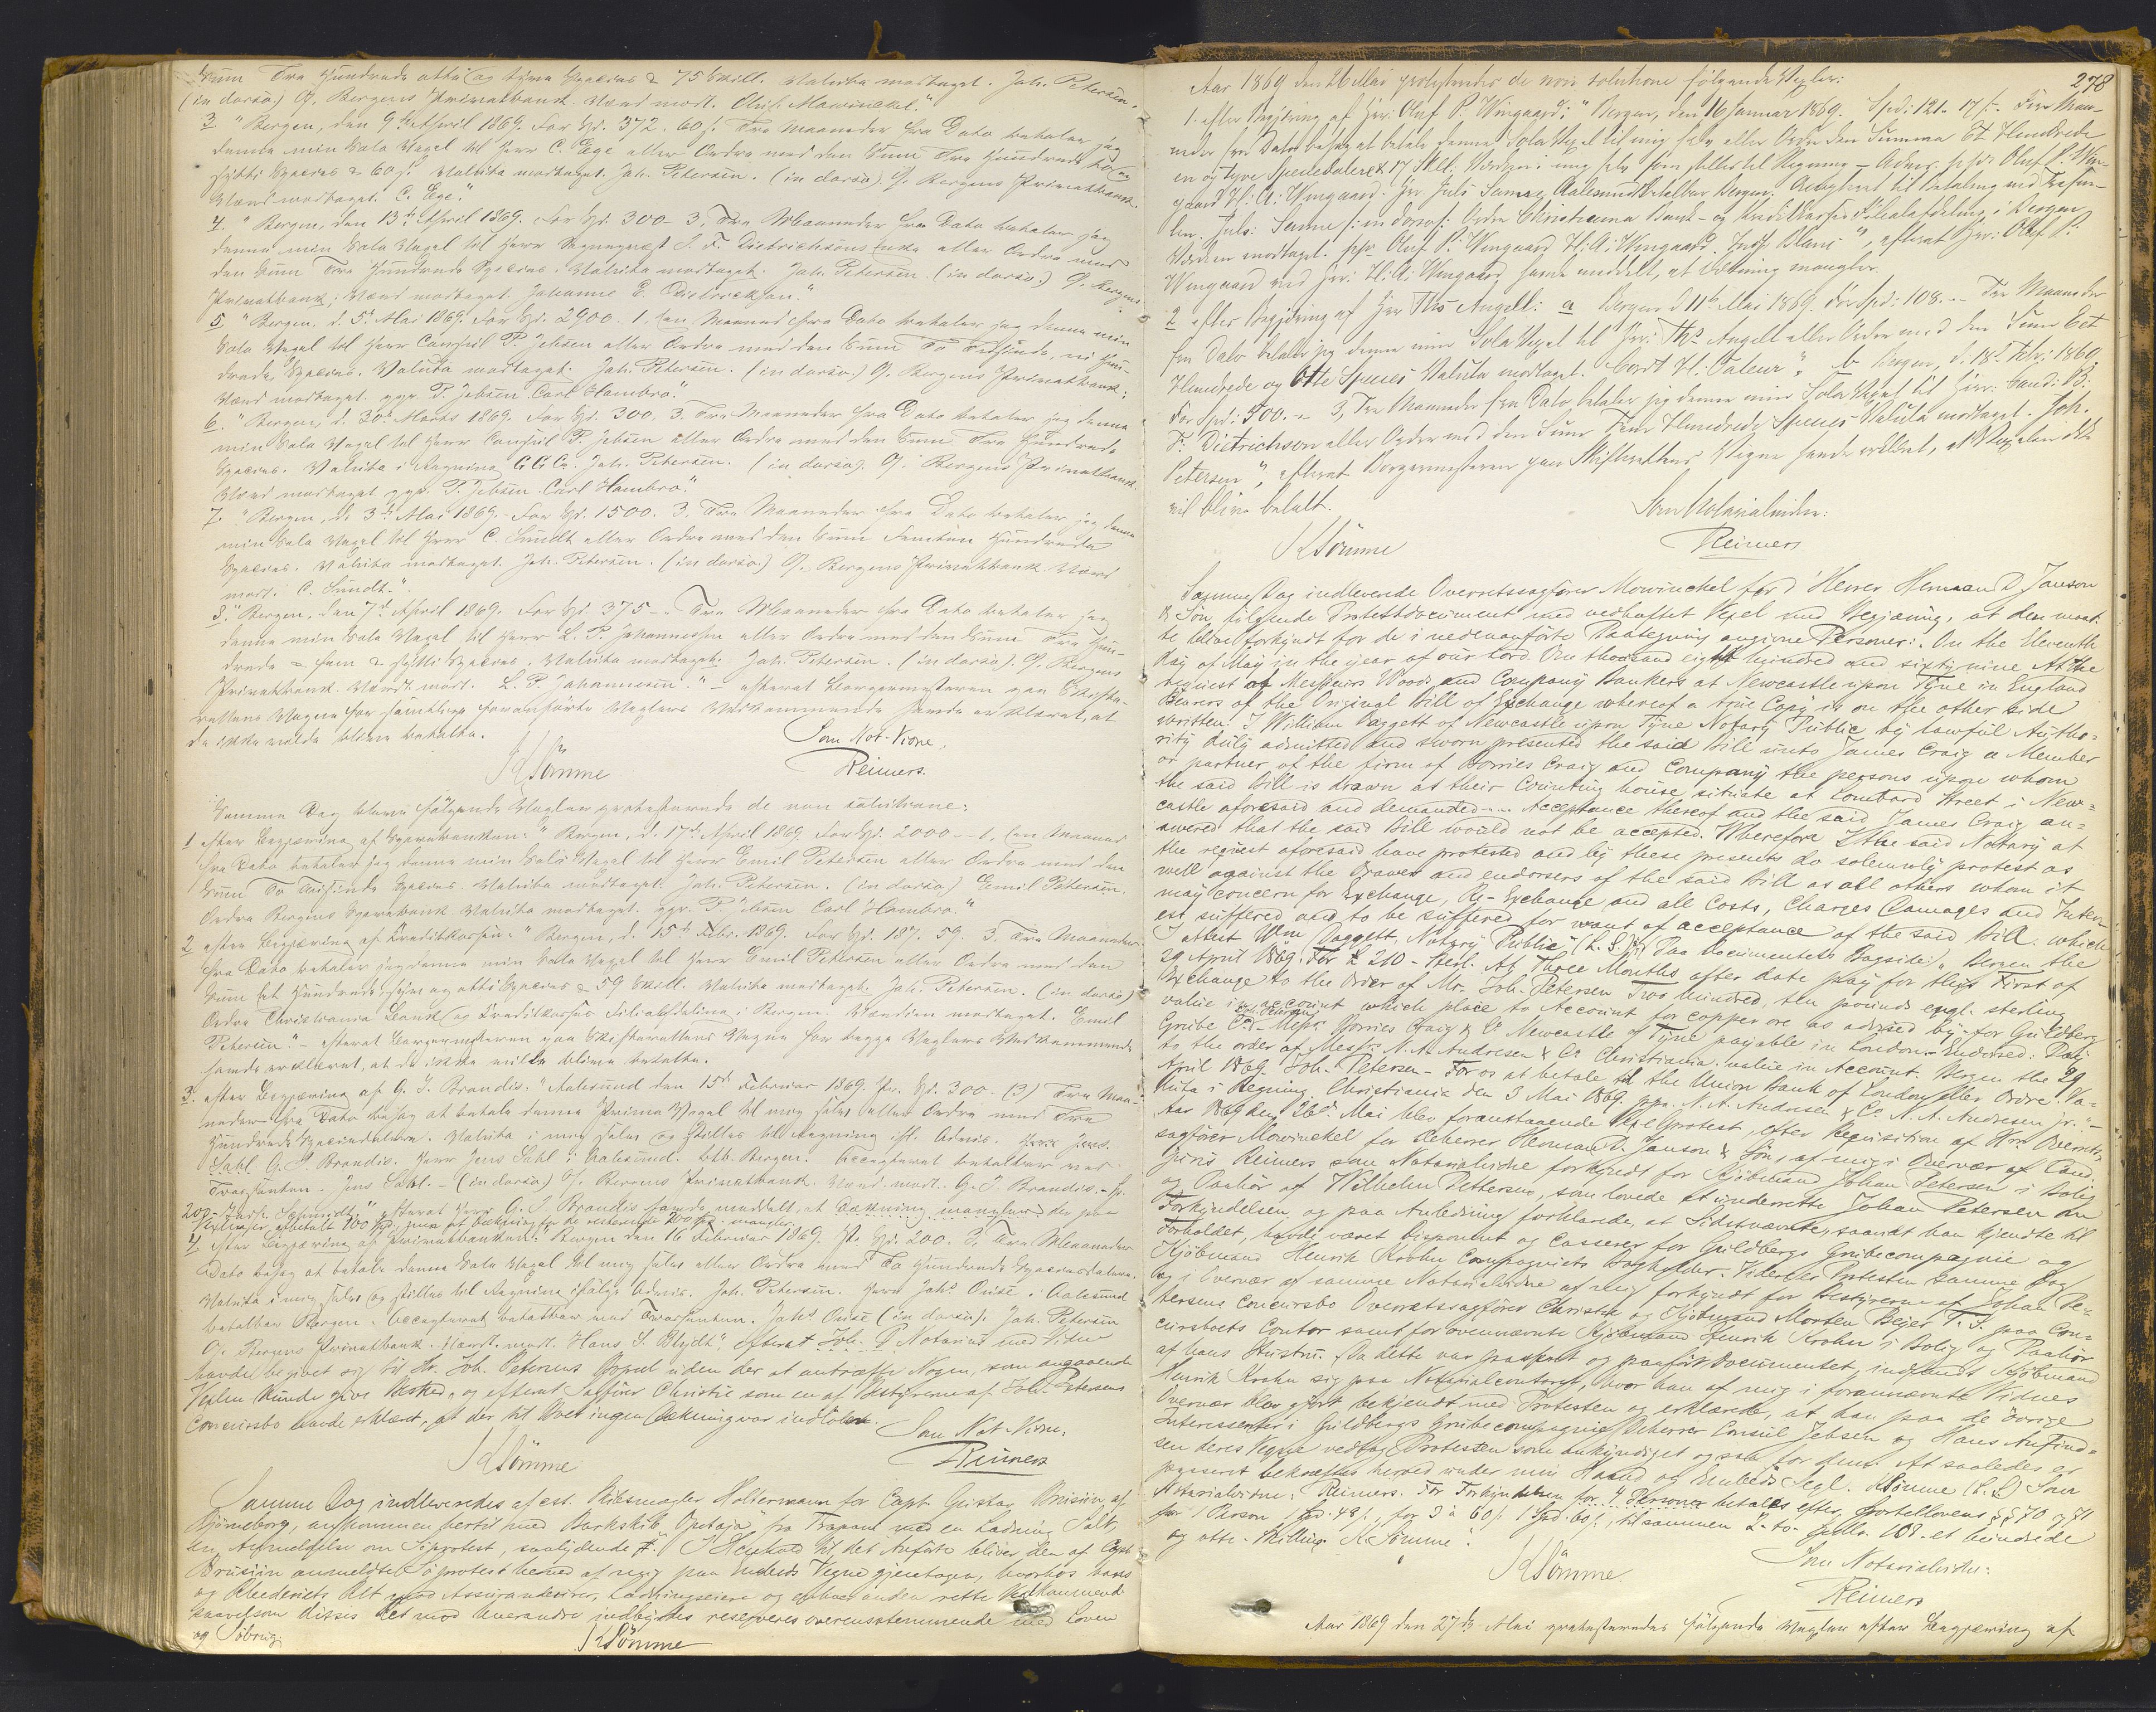 Sum Tre Hundrede otti og syv Species & 75 Skill. Valuta modtaget. Joh. Petersen.
(in dorso.) O/. Bergens Privatbank. Værd modt. Chrs. Mowinckel."
3 "Bergen, den 9de April 1869. For Spd. 372. 60 s. Tre Maaneder fra Dato betaler jeg
denne min Sola Vexel til Herr C. Ege eller Ordre med den Sum Tre Hundrede to og
sytti Species & 60 s. Valuta modtaget. Joh. Petersen. (in dorso). O/. Bergens Privatbank.
Værd modtaget. C. Ege."
4. "Bergen, den 13de April 1869. For Spd. 300 - 3, Tre Maaneder fra Dato betaler jeg
denne min Sola Vexel til Herr Sognepræst J. F. Dietrichsons Enke eller Ordre med
den Sum Tre Hundrede Species. Valuta modtaget. Joh. Petersen. (in dorso.) O/. Bergens
Privatbank; Værd modtaget. Johanne E. Dietrichson."
5, "Bergen, d. 5te Mai 1869. For Spd. 2900. 1. Een Maaned fra Dato betaler jeg denne min
Sola Vexel til Herr Consul P. Jebsen eller Ordre med den Sum To Tusinde, ni Hun-
drede Species. Valuta modtaget. Joh. Petersen. (in dorso.) O/. Bergens Privatbank:
Værd modtaget. ppr. P. Jebsen Carl Hambro."
6. "Bergen, d. 30te Marts 1869. For Spd. 300. 3. Tre Maaneder fra Dato betaler jeg denne
min Sola Vexel til Herr Consul P. Jebsen eller Ordre med den Sum Tre Hundrede
Species. Valuta i Regning G G Co. Joh. Petersen. (in dorso). O/. Bergens Privatbank.
Værd modtaget ppr. P. Jebsen. Carl Hambro."
7. "Bergen, d. 3de Mai 1869. For Spd. 1500. 3. Tre Maaneder fra Dato betaler jeg denne
min Sola Vexel til Herr C. Sundt eller Ordre med den Sum Femten Hundrede
Species. Valuta modtaget. Joh. Petersen. (in dorso.) O/. Bergens Privatbank. Værd
modt. C. Sundt."
8. "Bergen, den 7de April 1869. For Spd 375 -. Tre Maaneder fra Dato betaler jeg
denne min Sola Vexel til Herr L. P. Johannessen eller Ordre med den Sum Tre Hun-
drede & fem & sytti Species. Valuta modtaget. Joh. Petersen. (in dorso). O/. Bergens
Privatbank. Værdt modt. L. P. Johannesen." - efterat Borgermesteren paa Skifte-
rettens Vegne for samtlige foranførte Vexlers Vedkommende havde erklæret, at
de ikke vilde blive betalte.
Som Not. Vidne,
KSömme
Reimers.
Samme Dag bleve følgende Vexler protesterede de non solutione:
1 efter Begjæring af Sparebanken: "Bergen, d. 17de April 1869 For Spd. 2000 - - 1, Een Maaned
fra Dato betaler jeg denne min Sola Vexel til Herr Emil Petersen eller Ordre med den
Sum To Tusinde Species. Valuta modtaget. Joh. Petersen. (in dorso) Emil Petersen.
Ordre Bergens Sparebank Valuta modtaget. ppr. P. Jebsen Carl Hambro."
2 efter Begjæring af Kreditkassen: "Bergen, d. 15de Febr. 1869. For Spd. 187. 59. 3. Tre Maaneder
fra Dato betaler jeg denne min Sola Vexel til Herr Emil Petersen eller Ordre med den
Sum Et Hundrede, syv og otti Species & 59 Skill. Valuta modtaget. Joh. Petersen. (in dorso)
Ordre Christiania Bank og Kreditkasses Filialafdeling i Bergen. Værdien modtaget. Emil
Petersen." - efterat Borgermesteren paa Skifterettens Vegne for begge Vexlers Vedkommende
havde erklæret, at de ikke vilde blive betalte.
3. efter Begjæring af G. J. Brandis: "Aalesund den 15de Februar 1869. Pr. Spd. 300 - (3) Tre Maa-
neder fra Dato behag at betale denne Prima Vexel til mig selv eller Ordre med Tre
Hundrede Speciedalere. Valuta i mig selv og stilles til Regning ifl. Advis. Herr Jens
Dahl. G. J. Brandis. Herr Jens Dahl i Aalesund. btlb. Bergen. Accepteret betalbar ved
Trassenten. Jens Dahl. - (in dorso) O/. Bergens Privatbank. Værd. modt. G. J. Brandis. -
efterat G. J. Brandis havde meddelt, at Dækning mangler der paa
Vexlen er afbetalt 100 Spd., men at Dækning for de resterende 200 Spd. mangler.
4 efter Begjæring af Privatbanken: "Bergen den 16 Februar 1869. Pr. Spd. 200. 3, Tre Maaneder
Dato behag at betale denne Sola Vexel til mig selv eller Ordre med To Hundrede Speciesdalere.
Valuta i mig selv og stilles til Regning ifølge Advis. Joh. Petersen. Herr Johs Ouise i Aalesund
betalbar Bergen. Accepteret betalbar ved Trassenten. Johs Ouise (in dorso). Joh. Petersen
O/. Bergens Privatbank. Værdt. modt. Hans S. Blydt", efterat Notarius med Vidne
havde begivet sig til Hr. Joh. Petersens Bopæl uden der at antræffe Nogen, som angaaende
Vexlen kunde give Besked, og efterat Sagfører Christie som en af Bestyrerne af Joh. Petersens
Concursbo havde erklæret, at der til Boet ingen Dækning var indløben.
Som Not. Vidne,
KSömme
Reimers
Samme Dag indleveredes af cst. Skibsmægler Holtermann for Capt Gustav Brusiin af
Björneborg, ankommen hertil med Barkskib "Opitaja" fra Trapani med en Ladning Salt,
en Anmeldelse om Søprotest, saalydende #: "I Henhold til det Anførte bliver den af Capt
Brusiin anmeldte Søprotest herved af mig paa Embeds Vegne gjentagen, hvorhos hans
og Rhederiets Ret mod Assurandeurer, Ladningseiere og enhver anden rette Vedkommende
saavelsom disses Ret mod hverandre indbyrdes reserveres overensstemmende med Loven
og Söbrug.
KSömme
278
Aar 1869 den 26 Mai protesteredes de non solutione følgende Vexler:
1. efter Begjæring af Herr Oluf P. Wingaard: "Bergen, den 16 Januar 1869. Spd: 121. 17 s. Fire Maa-
neder fra Dato behag at betale denne Sola Vexel til mig selv eller Ordre den Summa Et Hundrede
en og tyve Speciedalere & 17 Skill. Værdien i mig selv som stilles til Regning - Advis. ppr: Oluf P. Win-
gaard H: A: Wingaard. Herr Juls Sanne, Aalesund betalbar Bergen. Accepteret til Betaling ved Trassen-
ten. Juls: Sanne /: in dorso :/ Ordre Christiania Bank- og Kreditkasses Filialafdeling i Bergen
Værdien modtaget. ppr Oluf P: Wingaard H: A: Wingaard. Indf. Blanc", efterat Herr: Oluf P:
Wingaard ved Hr: H: A: Wingaard havde meddelt, at Dækning mangler.
2 efter Begjæring af Herr Ths Angell: a Bergen d 11te Mai 1869. For Spd: 108. - - Tre Maaneder
fra Dato betaler jeg denne min Sola Vexel til Herr: Ths. Angell eller Ordre med den Sum Eet
Hundrede og Otte Species Valuta modtaget. Cordt H: Valeur". b Bergen, d. 18de Febr: 1869.
For Spd: 500. - 3, Tre Maaneder fra Dato betaler jeg denne min Sola Vexel til Herr: Cand: B:
F: Dietrichson eller Ordre med den Sum Fem Hundrede Species Valuta modtaget. Joh.
Petersen", efterat Borgermesteren paa Skifterettens Vegne havde erklæret, at Vexelen ikke
vil blive betalt.
Som Notarialvidne:
KSömme
Reimers
Samme Dag indleverede Overretssagfører Mowinckel for d'Herrer Herman D Janson
& Søn følgende Protestdocument med vedhæftet Vexel med Begjæring, at den maat-
te blive forkyndt for de i nedenanførte Paategning angivne Personer: "On the Eleventh
day of May in the year of our Lord One thousand eight hundred and sixty nine At the
request of Messieurs Woods and Company Bankers at Newcastle upon Tyne in England
Bearers of the Original Bill of Exchange whereof a true Copy is on the other side
written: I William Daggett of Newcastle upon Tyne Notary Public by lawful Autho-
rity duly admitted and sworn presented the said Bill unto James Craig a Member
or partner of the firm of Borries Craig and Company the persons upon whom
the said Bill is drawn at their Counting house situate at Lombard Street i New-
castle aforesaid and demanded - - - Acceptance thereof and the said James Craig an-
swered that the said Bill would not be accepted. Wherefore I the said Notary at
the request aforesaid have protested and by these presents do solemnly protest as
well against the Drawer and endorsers of the said Bill as all others whom it
may concern for Exchange, Re-Exchange and all Costs, Charges Damages and Inter-
est suffered and to be suffered for want of acceptance of the said Bill. which
I attest Wm Daggett. Notary Public" (L. S.) (Paa Documentets Bagside) "Bergen the
29 April 1869. For £ 210 - Sterl. At Three Months after date pay for this First of
Exchange to the Order of Mr. Joh. Petersen Two hundred, ten pounds engl. sterling
value in account which place to Account for copper ore as advised by for Guldberg
Grube Co. Joh. Petersen. Messrs Borries Craig & Co Newcastle o/ Tyne payable in London. Endorsed: Pay
to the order of Messrs. N. A. Andresen & Co Christiania. value in Account. Bergen the 29
April 1869. Joh. Petersen - For os at betale til the Union Bank of London eller Ordre. Va-
luta i Regning Christiania den 3 Mai 1869. ppr. N. A. Andresen & Co N. A. Andresen jr. -
Aar 1869 den 26de Mai blev foranstaaende Vexelprotest, efter Requisition af Hr. Overrets-
sagfører Mowinckel for deherrer Herman D. Janson & Søn, af mig i Overvær af Cand.
juris Reimers som Notarialvidne forkyndt for Kjöbmand Johan Petersen i Bolig
og Paahör af Wilhelm Pettersen, som lovede at underrette Johan Petersen om
Forkyndelsen og paa Anledning forklarede, at Sidstnævnte, saavidt han kjendte til
Forholdet, havde været Disponent og Casserer for Guldbergs Grubecompagnie og
Kjöbmand Henrik Krohn Compagniets Bogholder. Videre er Protesten samme Dag
og i Overvær af samme Notarialvidne af mig forkyndt for Bestyrerne af Johan Pe-
tersens Concursbo Overretssagfører Christie og Kjöbmand Morten Beyer T. S. paa Con-
cursboets Contor samt for ovennævnte Kjöbmand Henrik Krohn i Bolig og Paahör
af hans Hustru. Da dette var passeret og paaført Documentet, indfandt Kjöbmand
Henrik Krohn sig paa Notarialcontoret, hvor han af mig i forannævnte Vidnes
Overvær blev gjort bekjendt med Protesten og erklærede, at han paa de övrige
Interessenter i Guldbergs Grubecompagnie, Deherrer Consul Jebsen og Hans Amund-
sen deres Vegne vedtog Protesten som ankyndiget ogsaa for dem. At saaledes er
passeret bekræftes herved under min Haand og Embeds Segl. KSömme (L. S.) Som
Notarialvidne: Reimers. For Forkyndelsen for 4 Personer betales efter Sportellovens §§ 70 og 71
for 1 Person 1 Spd. 48 s., for 3 à 60 s. 1 Spd. 60 s., tilsammen 2 - to - Spdlr. 108. et hundrede
og otte - Skilling KSömme".
KSömme.
Som Notarialvidne:
Reimers
Aar 1869 den 27de Mai protesteredes følgende Vexler efter Begjæring af